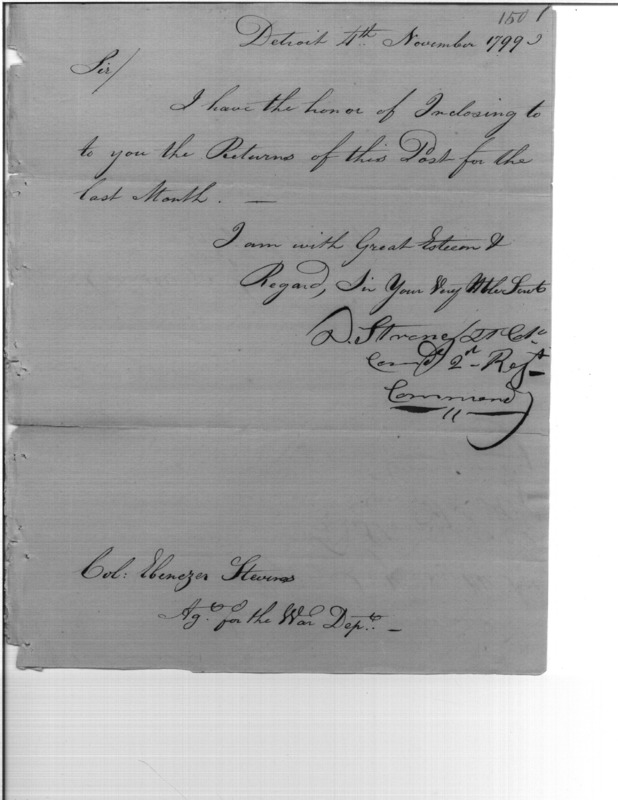 150 1
Detroit 4th November 1799
Sir/
I have the honor of Inclosing to
to you the Returns of this Post for the
last Month. —
I am with Great Esteem &
Regard, Sir Your Very Hble Servt
D. Strong Lt Col
Comdt 2nd Regt
Commandg
Col: Ebenezer Stevens
Agt for the War Dept. —